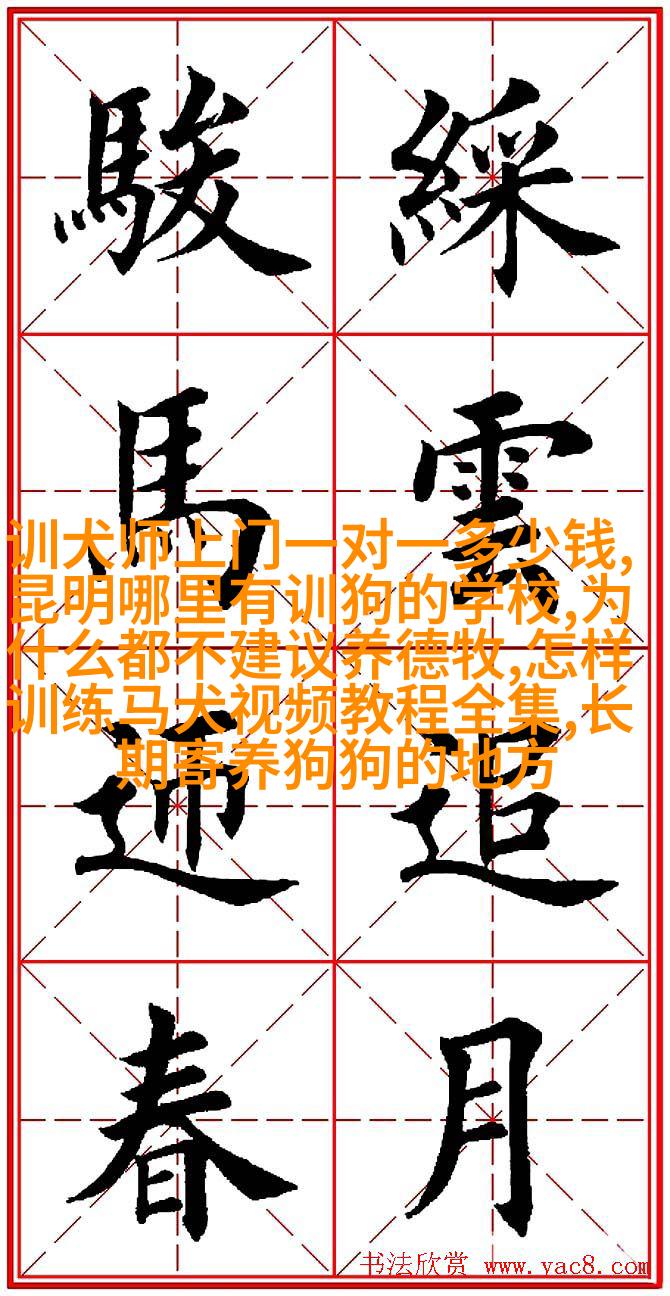 綵雲追月
駿馬迎春
训犬师上门一对一多少钱,
昆明哪里有训狗的学校,为
什么都不建议养德牧,怎样
训练马犬视频教程全集,长
期寄养狗狗的地方
书法欣赏 www.yac8.com